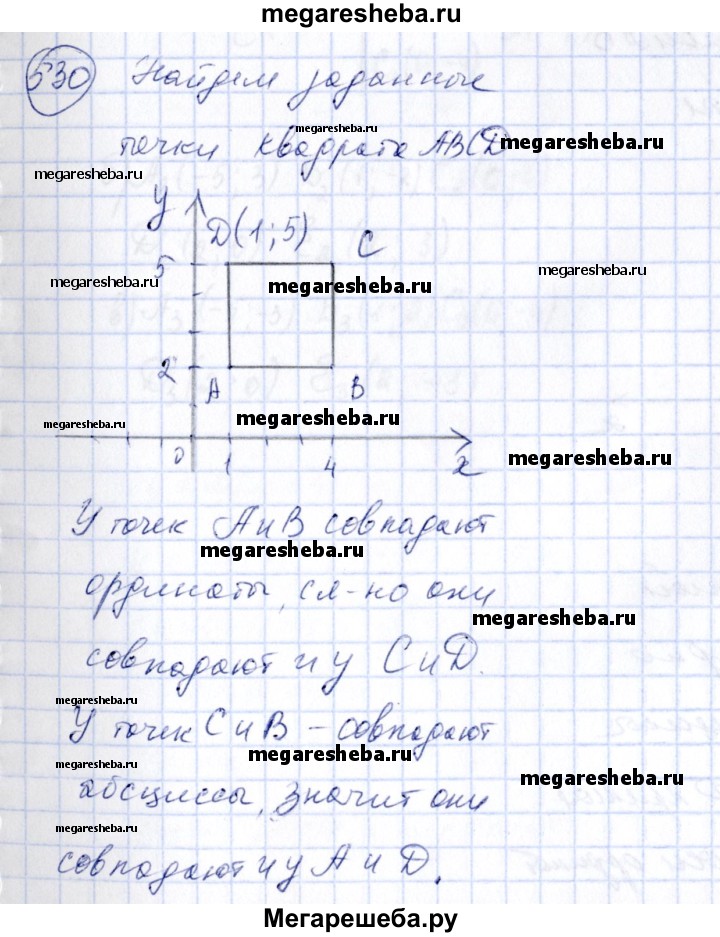 megaresheba.ru
530 Найдем заданные
megaresheba.ru
точки квадрата ABCD
megaresheba.ru
megaresheba.ru
y
D(1;5) C
5
megaresheba.ru
megaresheba.ru
megaresheba.ru
2
A B
megaresheba.ru
0 1 4 x
megaresheba.ru
У точек A и B совпадают
megaresheba.ru
ординаты, сл-но они
megaresheba.ru
совпадают и у C и D.
megaresheba.ru
У точек C и B – совпадают
megaresheba.ru
megaresheba.ru
megaresheba.ru
абсциссы, значит они
megaresheba.ru
совпадают и у A и D.
Мегарешеба.ру